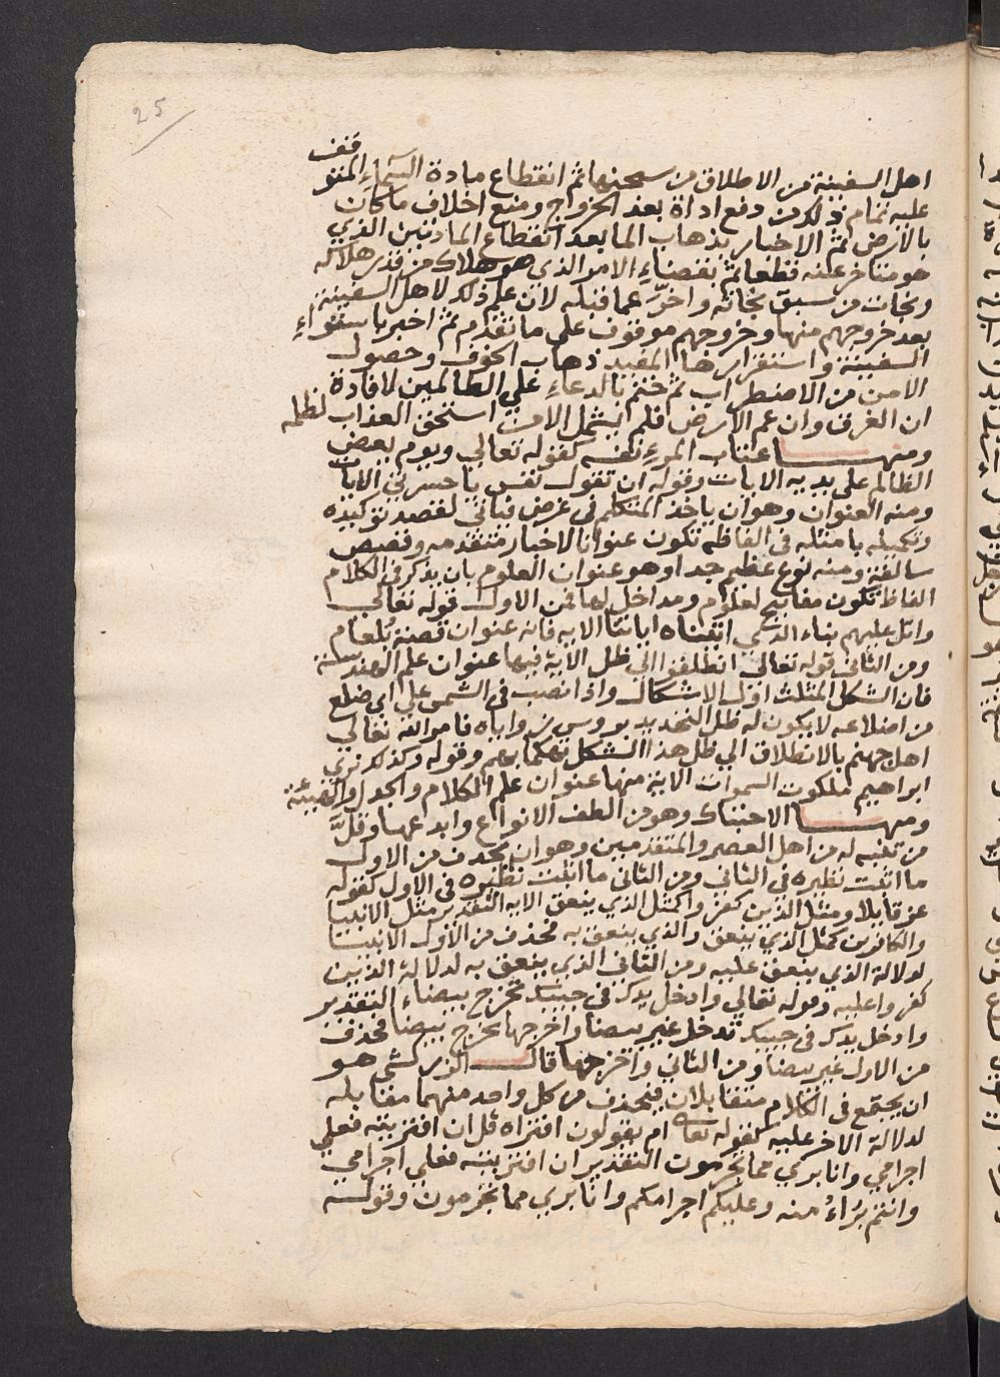 25
اهل السفينة من الاطلاق من سجنها ثم انقطاع مادة السماء المتوقف
عليه تمام ذلك من دفع اداة بعد الخروج ومنع اخلاف ما كان
بالارض ثم الاخبار بذهاب الما بعد انقطاع المادتين الذي
هو متاخر عنه قطعا ثم بقضاء الامر الذي هو هلاك من قدر هلاكه
ونجات من سبق نجاته واخر عما قبله لان علم ذلك لاهل السفينة
بعد خروجهم منها وخروجهم موقوف على ما تقدم ثم اخبر باستواء
السفينة واستقرارها المفيد ذهاب الخوف وحصول
الامن من الاضطراب ثم ختم بالدعاء علي الظالمين لافادة
ان الغرق وان عم الارض فلم يشمل الا من استحق العذاب لظلمه
ومنها عتاب المرء نفسه كقوله تعالي ويوم يعض
الظالم على يديه الايات وقوله ان تقول نفس يا حسرتي الايات
ومنه العنوان وهو ان ياخذ المتكلم في غرض فياتي لقصد توكيده
وتكميله بامثله في الفاظه تكون عنوانا لاخبار متقدمه وقصص
سالفة ومنه نوع عظيم جدا وهو عنوان العلوم بان يذكر في الكلام
الفاظ تكون مفاتيح لعلوم ومداخل لها فمن الاول قوله تعالي
واتل عليهم نباء الذي اتيناه اياتنا الايه فانه عنوان قصة بلعام
ومن الثاني قوله تعالي انطلقوا الي ظل الاية فيها عنوان علم الهندسة
فان الشكل المثلث اول الاشكال واذا نصب في الشمس علي اي ضلع
من اضلاعه لا يكون له ظل لتحديد بروس زواياه فامر الله تعالي
اهل جهنم بالانطلاق الي ظل هذا الشكل تهكما بهم وقوله وكذلك نري
ابراهيم ملكوت السموات الاية منها عنوان علم الكلام والجدل والهيئة
ومنها الاحتباك وهو من الطف الانواع وابدعها وقل
من تنبه له من اهل العصر والمتقدمين وهو ان يحذف من الاول
ما اثبت نظيره في الثاني ومن الثاني ما اثبت نظيره في الاول كقوله
عز قايلا ومثل الذين كفروا كمثل الذي ينعق الايه التقدير مثل الانبيا
والكافرين كمثل الذي ينعق والذي ينعق به فحذف من الاول الانبيا
لدلالة الذي ينعق عليه ومن الثاني الذي ينعق به لدلالة الذين
كفروا عليه وقوله تعالي وادخل يدك في جيبك تخرج بيضاء التقدير
وادخل يدك في جيبك تدخل غير بيضا واخرجها تخرج بيضا فحذف
من الاول غير بيضا ومن الثاني واخرجها قال الزركشي هو
ان يجتمع في الكلام متقابلان فيحذف من كل واحد منهما مقابله
لدلالة الاخر عليه كقوله تعا ام يقولون افتراه قل ان افتريته فعلي
اجرامي وانا بري مما تجرمون التقدير ان افتريته فعلي اجرامي
وانتم براء منه وعليكم اجرامكم وانا بري مما تجرمون وقوله